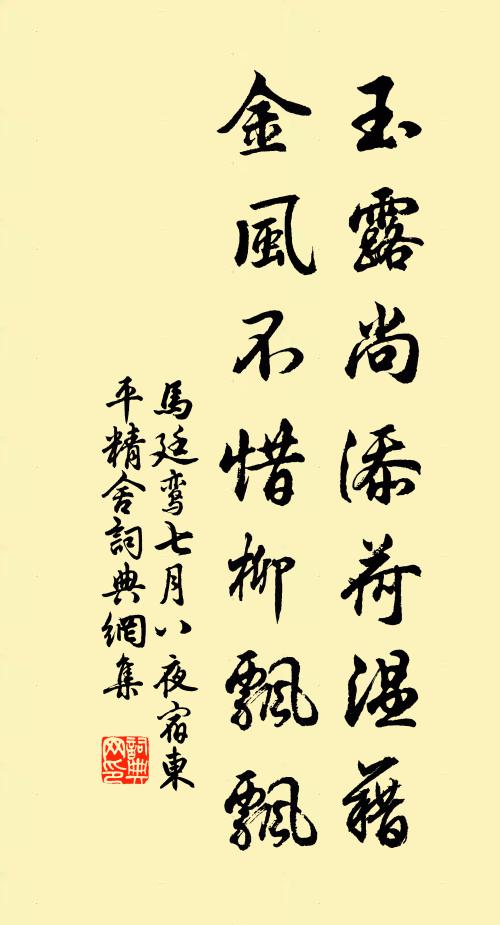 玉露尚添荷湿藉
金風不惜柳飄飄
馬廷鸾七月八夜宿東
平精舍詞典網集
詞典网印